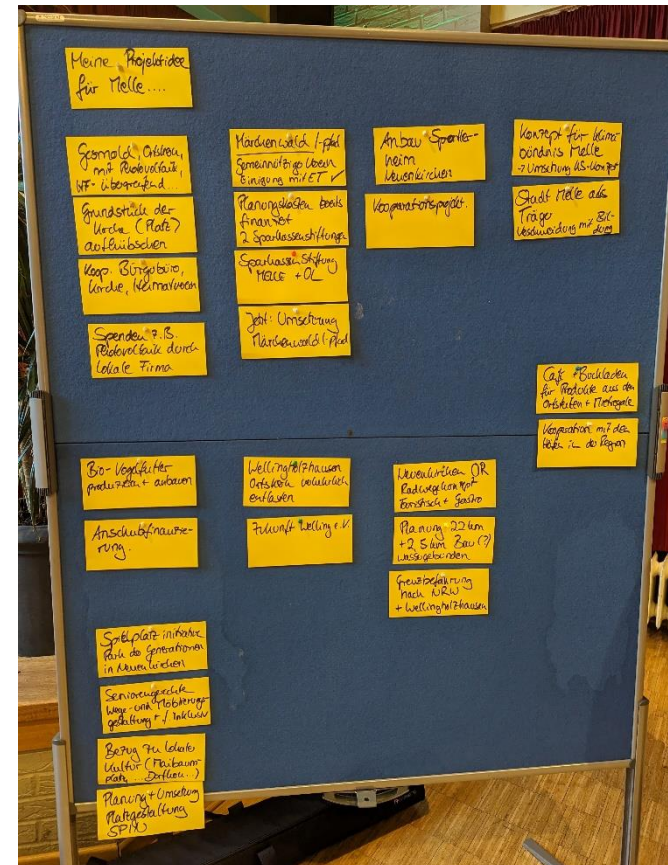 Meine Projektidee
für Melle....
Gesmold, Ortskern,
mit Photovoltaik,
übergreifend...
Grundstück der
Kirche (Platz)
aufhübschen
Koop. Bürgerbüro,
Kirche, Heimatverein
Spenden z.B.
Photovoltaik durch
lokale Firma
Märchenwald /-pfad
Gemeinnütziger Verein
Einigung mit ET ✓
Planungskosten bereits
finanziert
2 Sparkassenstiftungen
Sparkassen Stiftung
MELLE + OL
Jetzt: Umsetzung
Märchenwald/-Pfad
Anbau Sportler-
heim
Neuenkirchen
Kooperationsprojekt.
Konzept für Klima
bündnis Melle
→ Umsetzung KS-Konzept
Stadt Melle als
Träger
Verschneidung mit Bil-
dung
Café + Hochladen
für Produkte aus den
Ortsteilen + Mietregale
Kooperation mit den
in der Region
Bio-Vogelfutter
produzieren + anbauen
Anschubfinanzie-
rung.
Wellingholzhausen
Ortskern verkehrlich
entlasten
Zukunft Welling e.V
Neuenkirchen OR
Radwegkonzept
Touristisch + Gastro
Planung 22 km
+ 2,5 km Bau (?)
wassergebunden
Grenzbefahrung
nach NRW
+ Wellingholzhausen
Spielplatzinitiative
Park der Generationen
in Neuenkirchen
Seniorengerechte
Wege- und Möblierungs-
gestaltung + / inklusiv
Bezug zu lokaler
Kultur (Maibaum-
platz...
Planung + Umsetzung
Platzgestaltung